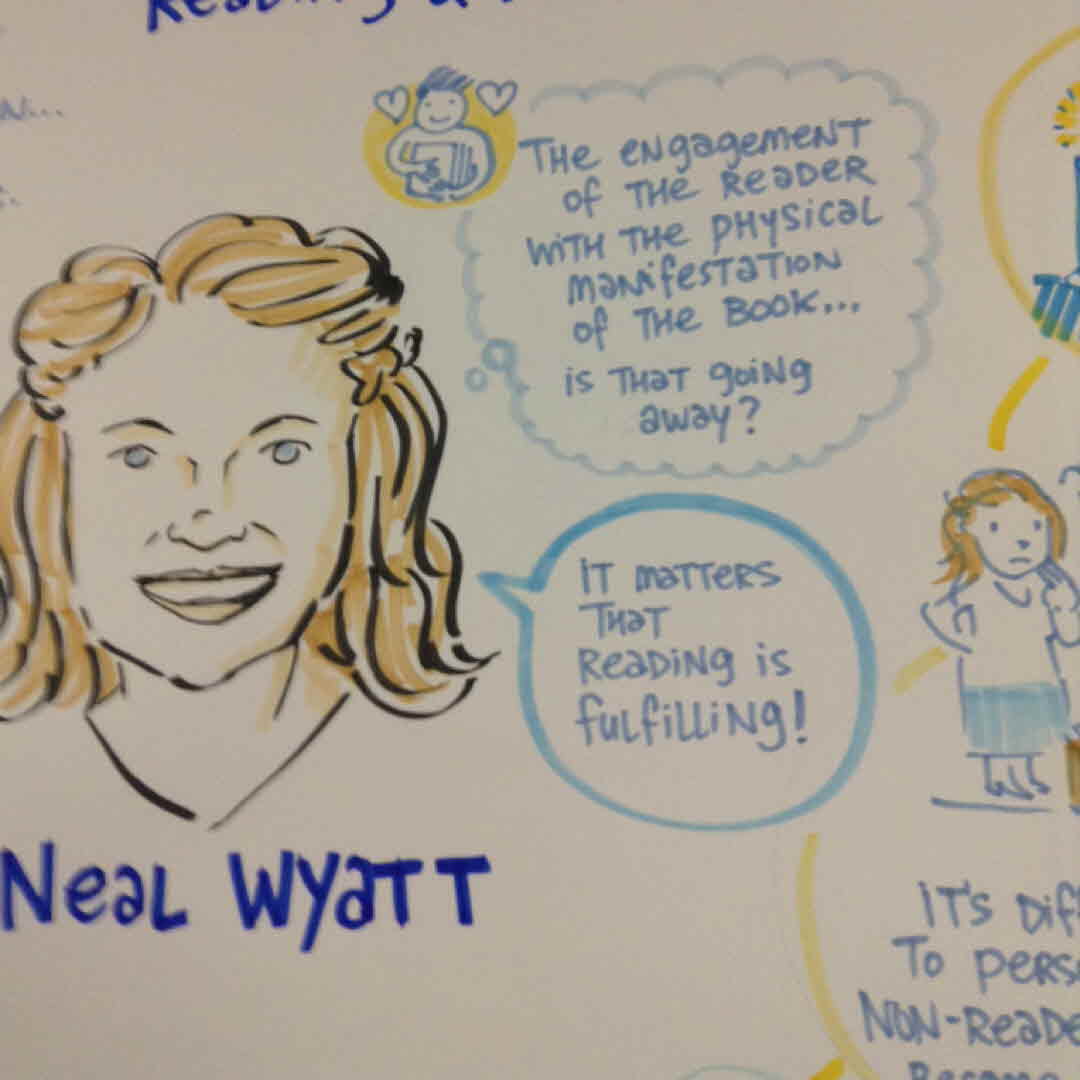 THE ENGAGEMENT
OF THE READER
WITH THE PHYSICAL
MANIFESTATION
OF THE BOOK...
IS THAT GOING
AWAY?
IT MATTERS
THAT
READING IS
FULFILLING!
NEAL WYATT
IT'S
TO
NON-